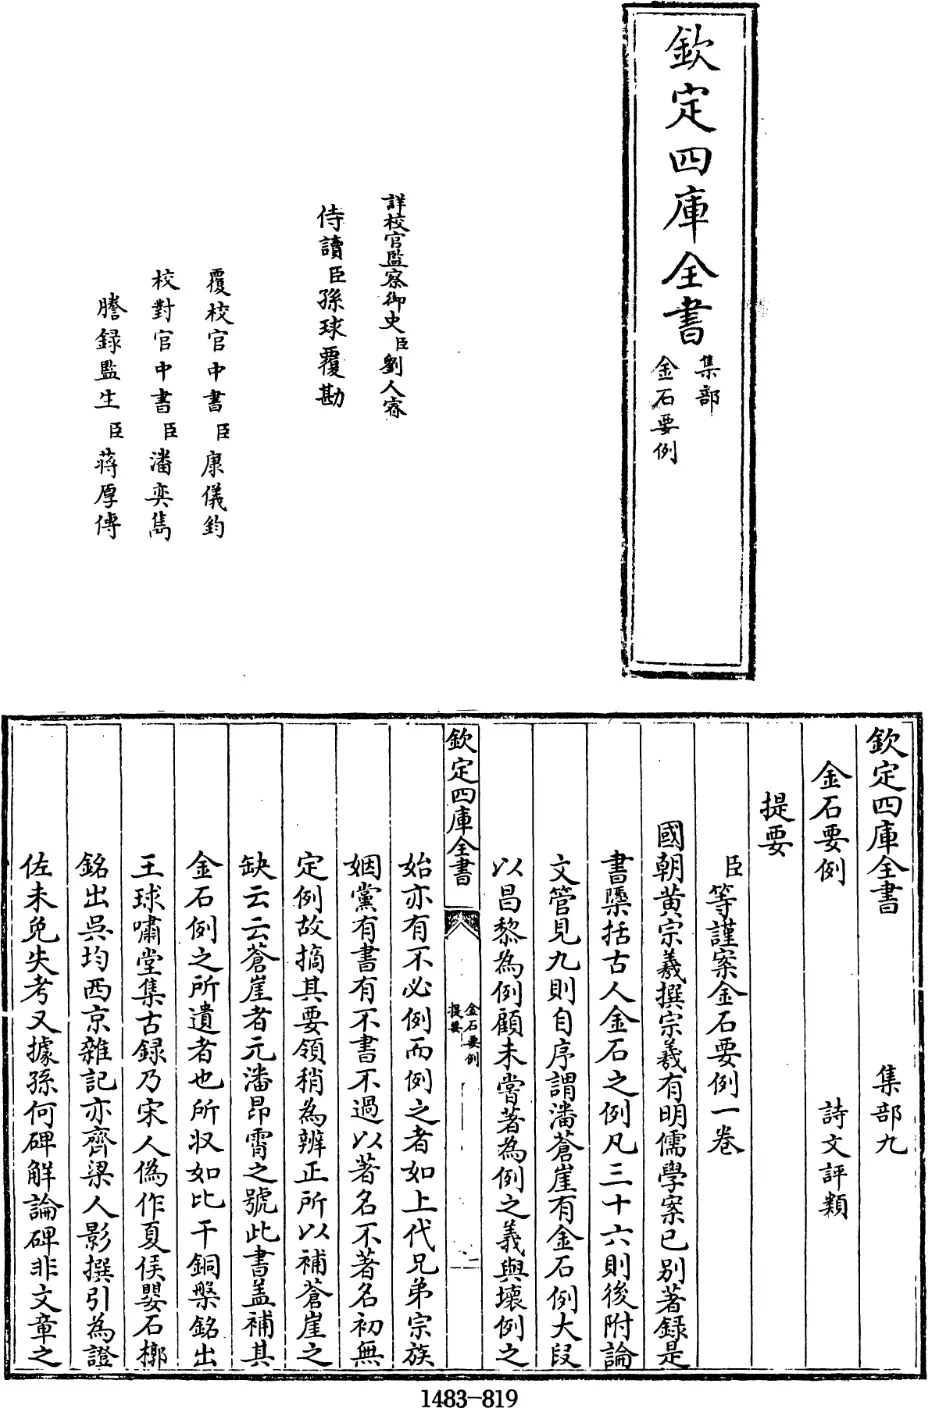 欽定四庫全書
集部
金石要例
詳校官監察御史臣劉人睿
侍讀臣孫球覆勘
覆校官中書臣康儀鈞
校對官中書臣潘奕雋
謄錄監生臣蔣厚傳
欽定四庫全書 集部九
金石要例 詩文評類
提要
臣等謹案金石要例一卷
國朝黄宗羲撰宗羲有明儒學案已别著錄是
書檃括古人金石之例凡三十六則後附論
文管見九則自序謂潘蒼崖有金石例大段
以昌黎為例顧未嘗著為例之義與壞例之
欽定四庫全書
金石要例
提要
一
始亦有不必例而例之者如上代兄弟宗族
姻黨有書有不書不過以著名不著名初無
定例故摘其要領稍為辨正所以補蒼崖之
缺云云蒼崖者元潘昂霄之號此書蓋補其
金石例之所遺者也所收如比干銅槃銘出
王球嘯堂集古録乃宋人偽作夏侯嬰石槨
銘出吳均西京雜記亦齊梁人影撰引為證
佐未免失考又據孫何碑解論碑非文章之
1483-819